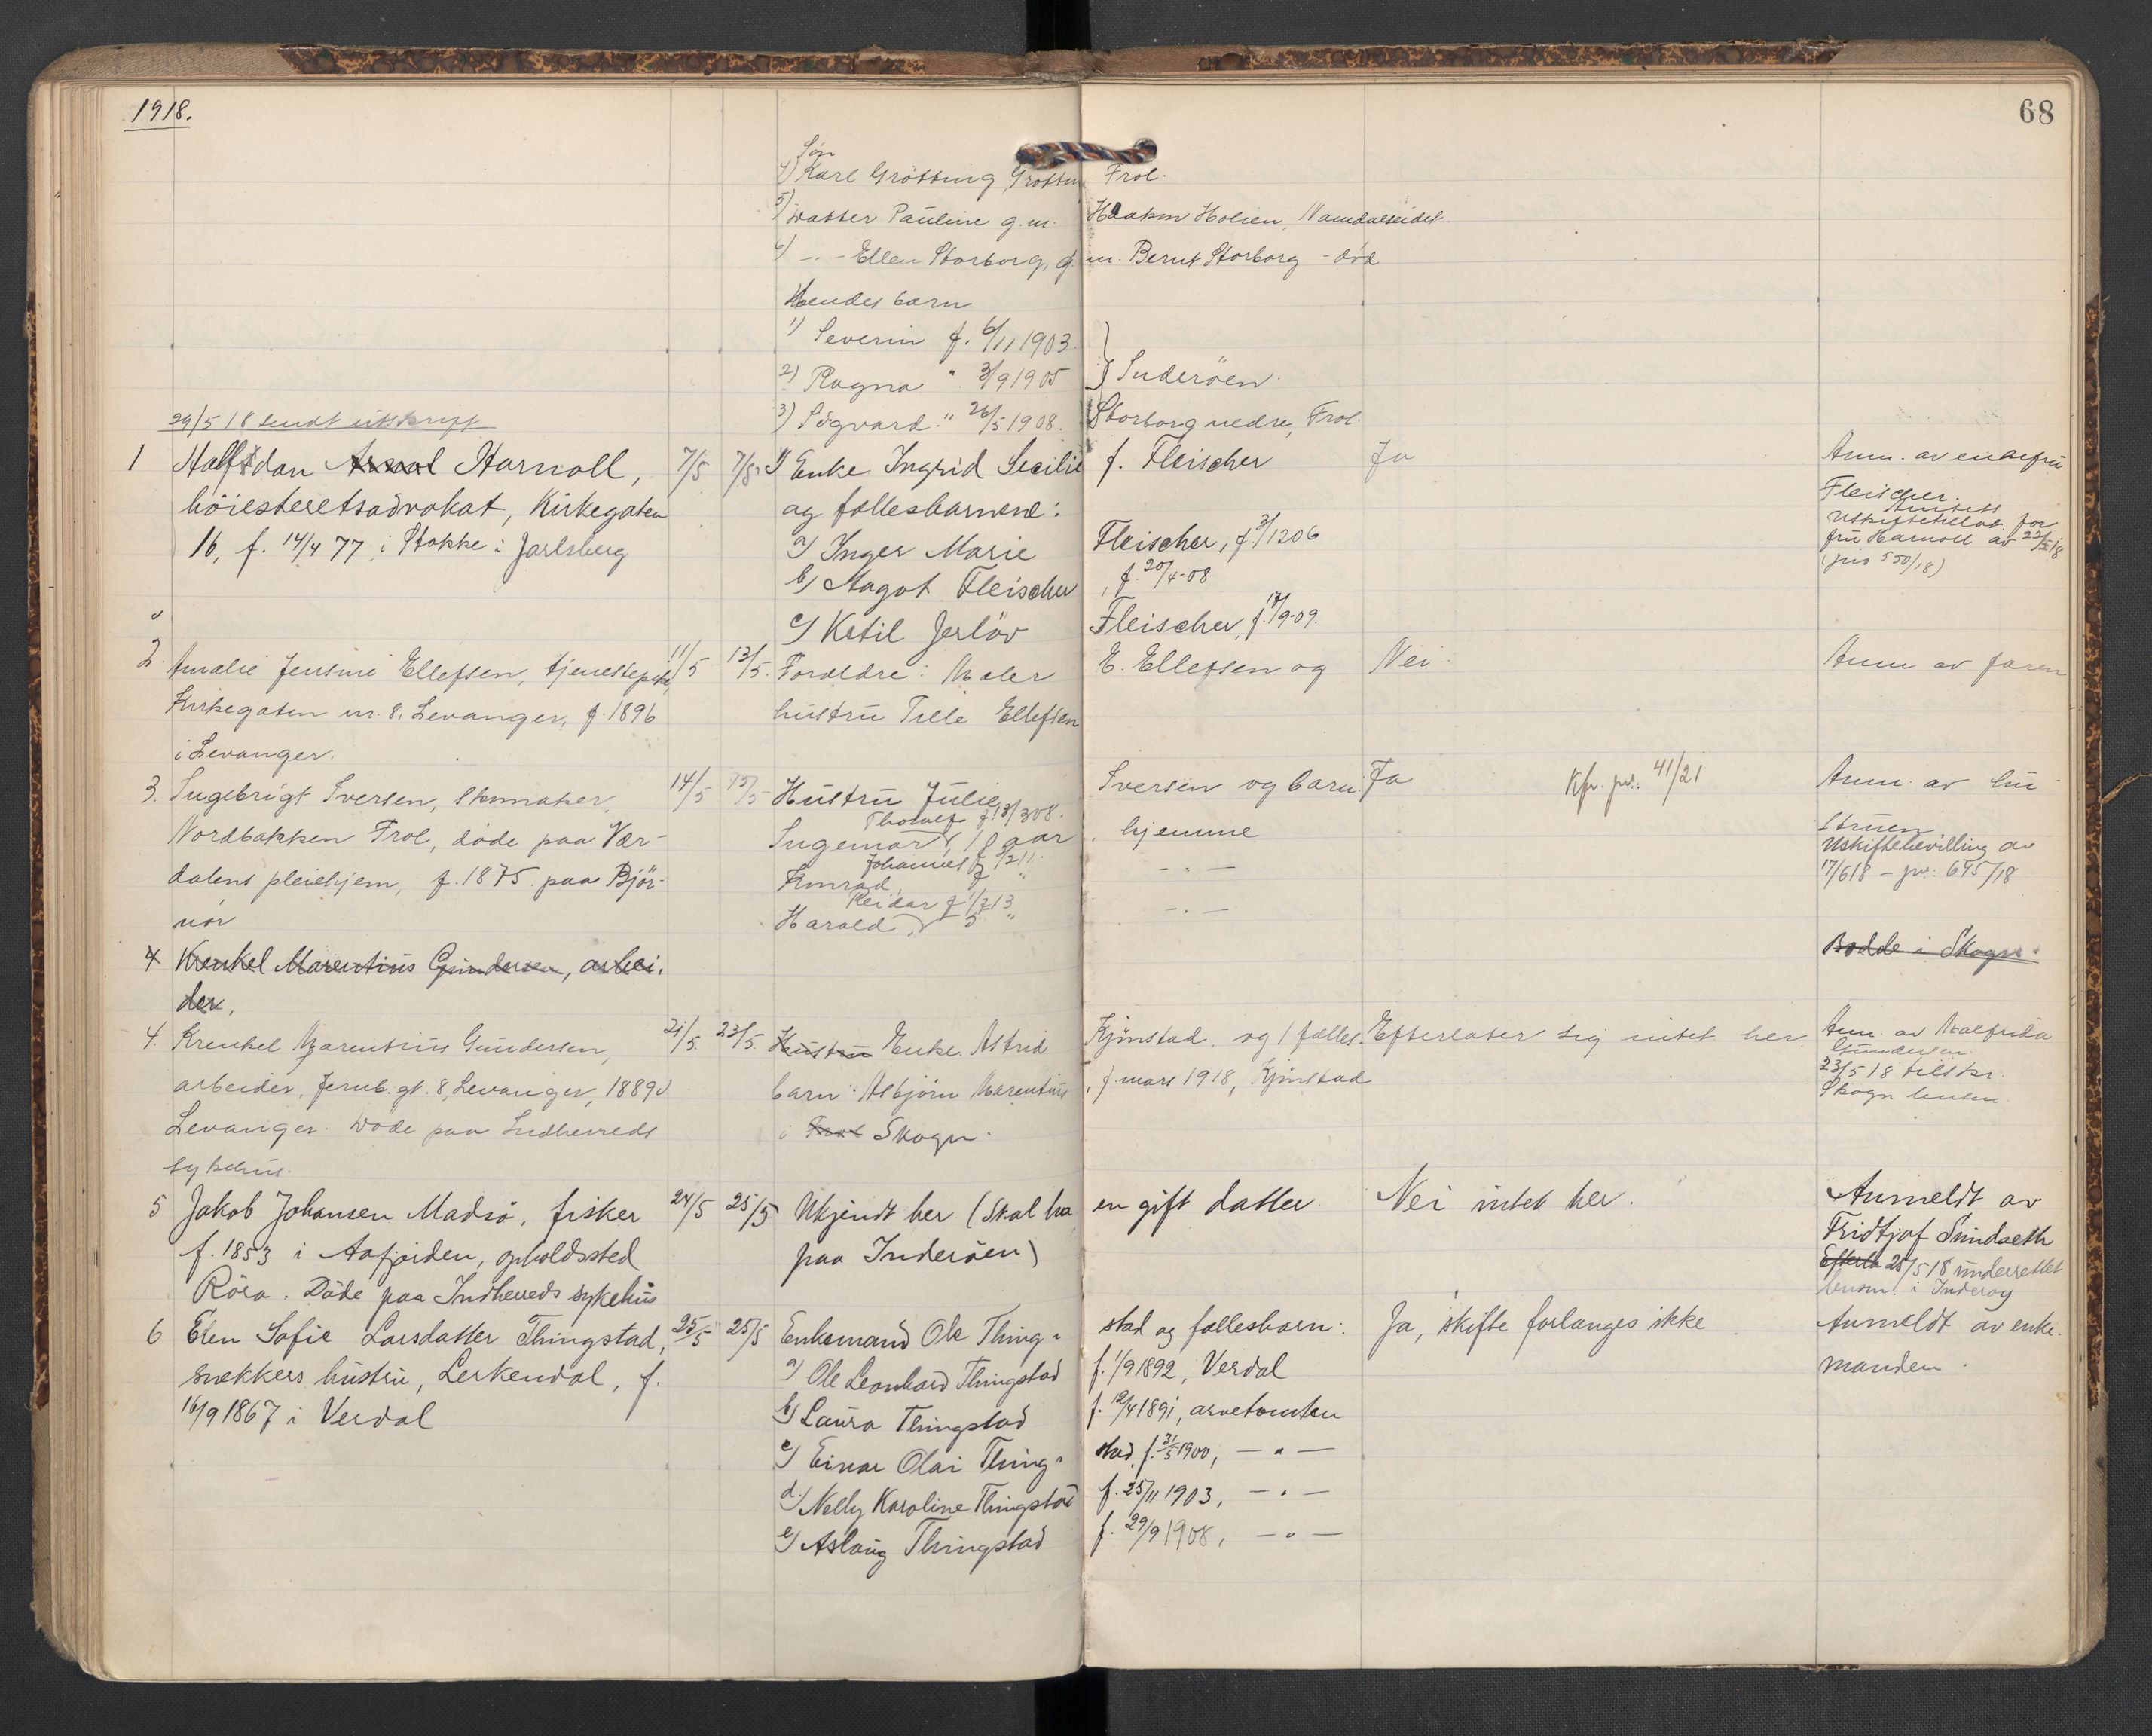 1918.
68
Søn
4) Karl Gröthing, Frol.
5) Datter Pauline g.m. Haakon Holien, Namdalseidet
6) -"- Ellen Storborg, g.m. Bernt Storborg - død
Hendes barn
1) Severin f. 6/11 1903.
2) Ragna " 3/9 1905 } Inderöen.
3) Sigvard " 26/5 1908. Storborg nedre, Frol.
29/5 18 sendt utskrift
1 Halfdan Harnoll, 7/5 7/5 1) Enke Ingrid Secilie f. Fleischer Ja Anm. av enkefru
höiesteretsadvokat, Kirkegaten og fællesbarnene: Fleischer.
16, f. 14/4 77 i Stokke i Jarlsberg a) Inger Marie Fleischer, f. 3/12 06 Uskiftetillat. for
b) Magot Fleischer, f. 20/4-08 fru Harnoll av 22/5 18
c) Ketil Jerlöv Fleischer, f. 17/9-09. (jnr 550/18)
2 Amalie Jensine Ellefsen, tjenestepike, 11/5 13/5. Foreldre: Maler E. Ellefsen og Nei. Anm av faren
Kirkegaten nr. 8, Levanger, f. 1896 hustru Tille Ellefsen
i Levanger.
3. Ingebrigt Iversen, skomaker, 14/5 15/5 Hustru Julie Iversen og barn: Ja Kfr. jnr: 41/21 Anm. av hu-
Thorolf f 13/3 08.
Nordbakken Frol, døde paa Vær- Ingemar, aar, hjemme struen
Johannes f /2 11. Uskiftebevilling av
dalens pleiehjem, f. 1875 paa Bjør- Konrad, " -"- 17/6 18 - jnr: 645/18
Reidar f 1/7 13
nör Harald, 5 " -"-
4 Krenkel Marentius Gundersen, arbei- Bodde i Skogn.
der,
4. Krenkel Marentius Gundersen, 21/5. 23/5. Hustru Enke Astrid Kjönstad, og 1 fælles- Efterlater sig intet her. Anm. av Malfrida
Gundersen.
arbeider, Jernb. gt. 8, Levanger, 1889 barn: Asbjørn Marentius, f. mars 1918, Kjönstad 23/5 18 tilskr.
Levanger. Døde paa Indherreds i Frol Skogn. Skogn lensm.
sykehus.
5 Jakob Johansen Madsö, fisker 24/5 25/5 Ukjendt her (Skal ha en gift datter Nei intet her. Anmeldt av
f. 1853 i Aafjorden, opholdssted paa Inderöen) Fridtjof Sundseth
Röra. Døde paa Indherreds sykehus 25/5 18 underrettet
lensm. i Inderøy
6 Elen Sofie Larsdatter Thingstad, 25/5 25/5 Enkemand Ole Thing- stad og fællesbarn: Ja, skifte forlanges ikke Anmeldt av enke-
snekkers hustru, Lerkendal, f. a) Ole Leonhard Thingstad f. 1/9 1892, Verdal manden.
16/9 1867 i Verdal b) Laura Thingstad f. 12/4 1891, arvetomten
c) Einar Olai Thing- stad, f. 31/5 1900, -"-
d) Nelly Karoline Thingstad f. 25/11 1903, -"-
e) Aslaug Thingstad f. 29/9 1908, -"-